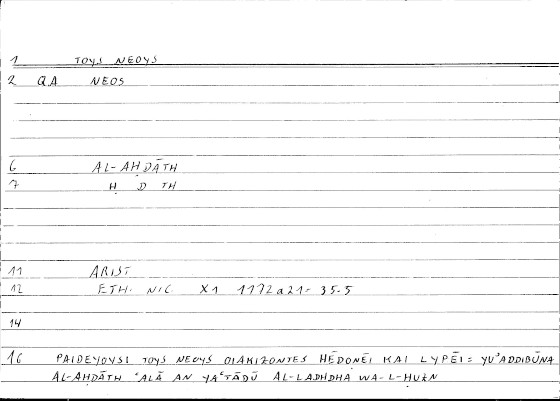 1 TOYS NEOYS
2 QA NEOS
6 AL-AḤDĀTH
7 Ḥ D TH
11 ARIST
12 ETH. NIC X1 1172a21= 35.5
14
16 PAIDEYOYSI TOYS NEOYS OIAKIZONTES HĒDONĒI KAI LYPĒI= YUʾADDIBŪNA
AL-AḤDĀTH ʿALĀ AN YAʿTĀDŪ AL-LADHDHA WA-L-ḤUZN